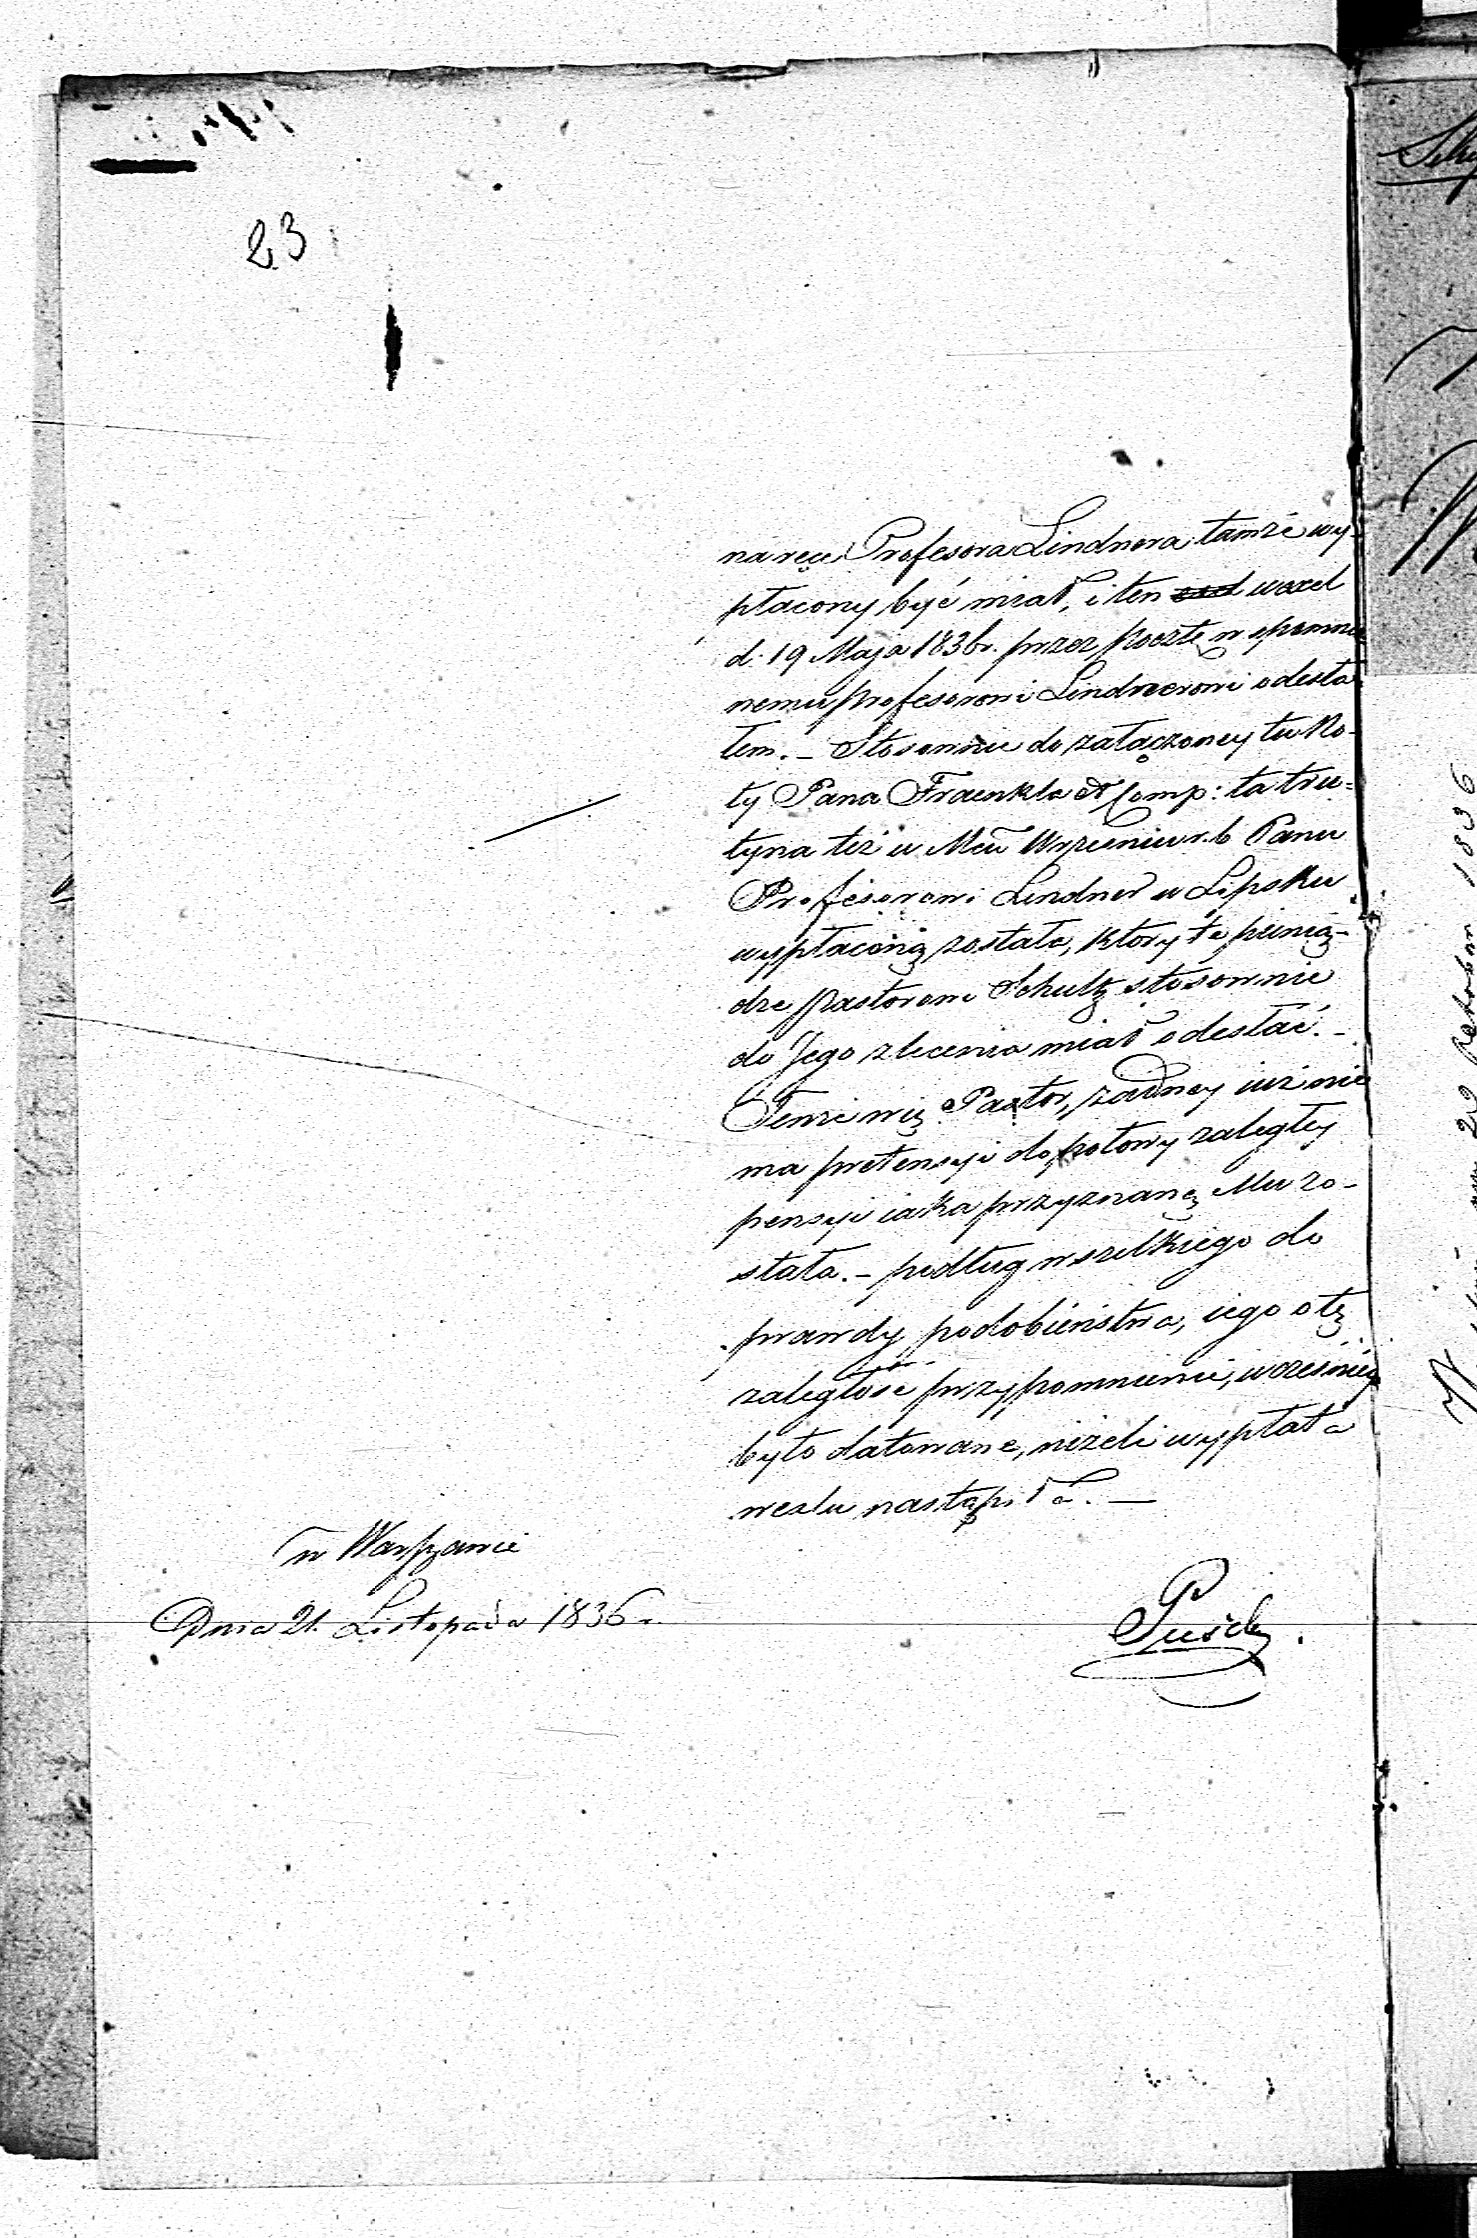 23
na ręce Profesora Lindnera tamże wy-
płacony być miał, i ten wexel
d. 19 Maja 1836 r. przez pocztę wspomnio
nemu profesorowi Lindnerowi odesła
łem. – Stosownie do załączoney tu No-
ty Pana Fraenkla et Comp: ta tra-
tyna też w Mcu Wrześniu r. b Panu
Profesorowi Lindner w Lipsku
wypłaconą została, który te pienią-
dze pastorowi Schultz stosownie
do Jego zlecenia miał odesłać. –
Tenże więc Pastor, żadney iuż nie
ma pretensyi do połowy zaległey
pensyi iaka przyznaną Mu zo-
stała. – podług wszelkiego do
prawdy podobieństwa, iego o tę
zaległość przypomnienie, wcześniey
było datowane, niżeli wypłata
wexlu nastąpiła. –
w Warszawie
Dnia 21. Listopada 1836.
Pusch.